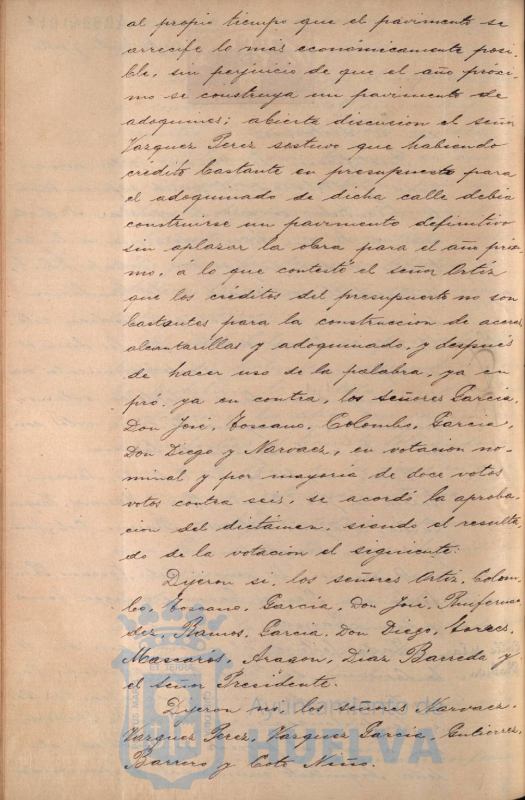 al propio tiempo que el pavimento se
arrecife lo más económicamente posi-
ble, sin perjuicio de que el año próxi-
mo se construya un pavimento de
adoquines; abierta discucion el señor
Vazquez Perez sostuvo que habiendo
crédito bastante en presupuesto para
el adoquinado de dicha calle debia
construirse un pavimento definitivo
sin aplazar la obra para el año próxi-
mo, á lo que contestó el señor Ortiz
que los créditos del presupuesto no son
bastantes para la construccion de aceras
alcantarillas y adoquinado, y después
de hacer uso de la palabra, ya en
pró, ya en contra, los señores Garcia,
Don José, Toscano, Colombo, Garcia,
Don Diego y Narvaez, en votacion no-
minal y por mayoria de doce votos
votos contra seis, se acordó la aproba-
cion del dictámen, siendo el resulta-
do de la votacion el siguiente:
Dijeron si, los señores Ortiz, Colom-
bo, Toscano, Garcia, Don José, Ruifernan-
dez, Ramos, Garcia, Don Diego, Torres,
Mascarós, Aragon, Diaz Barreda y
el señor Presidente.
Dijeron no, los señores Narvaez,
Vazquez Perez, Vazquez Garcia, Gutierrez,
Barrero y Coto Niño.
Ayuntamiento de
HUELVA